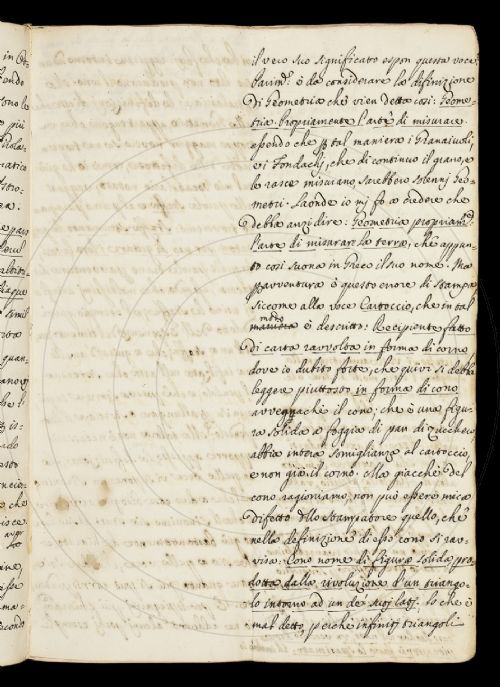 il vero suo significato espon questa voce.
Parim.e è da considerare la difinizione
di Geometria che vien detta così: Geome-
tria. Propriamente l'arte di misurare.
essendo che p tal maniera i Granaiuoli,
e i Fondachj, che di continuo il grano, e
le rasce misurano, sarebbero solenni Geo-
metri. Laonde io mi fo a credere che
debba anzi dire: Geometria propriam.e
l'arte di misurar la terra; che appun-
to così suona in Greco il suo nome. Ma
pavventura è questo errore di stampa
siccome alla voce Cartoccio, che in tal
modo
maniera è descritto: Recipiente fatto
di carta ravvolta in forma di corno
dove io dubito forte, che quivi si debba
leggere piuttosto in forma di cono,
avvegnachè il cono; che è una figu-
ra solida a foggia di pan di zucchero
abbia intera somiglianza al cartoccio,
e non già il corno. Ma giacchè del
cono ragioniamo, non può essere mica
difetto dello stampatore quello, che
nella definizione di esso cono si rav-
visa. Cono nome di figura solida pro-
dotta dalla rivoluzione d'un triango-
lo intorno ad un de' suoj latj. Lo che è
mal detto, perchè infinitj triangoli